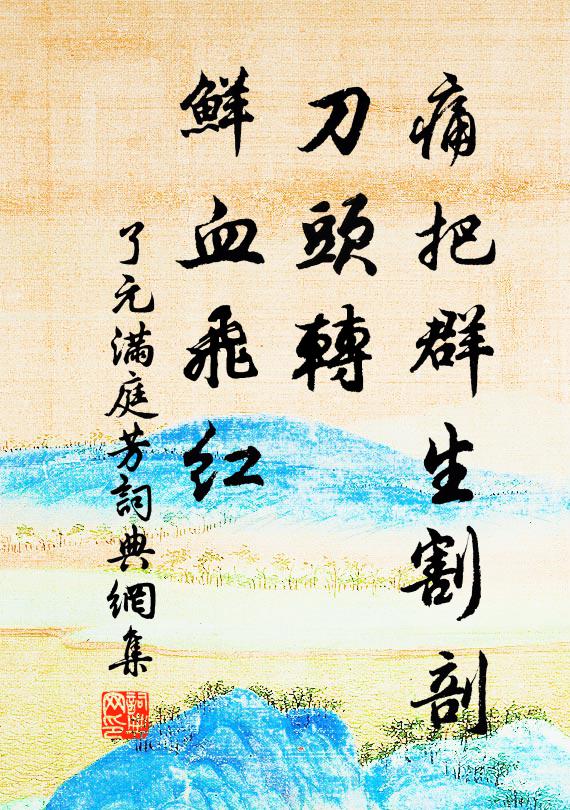 痛把群生割剖
刀頭轉
鮮血飛紅
了元满庭芳詞典網集